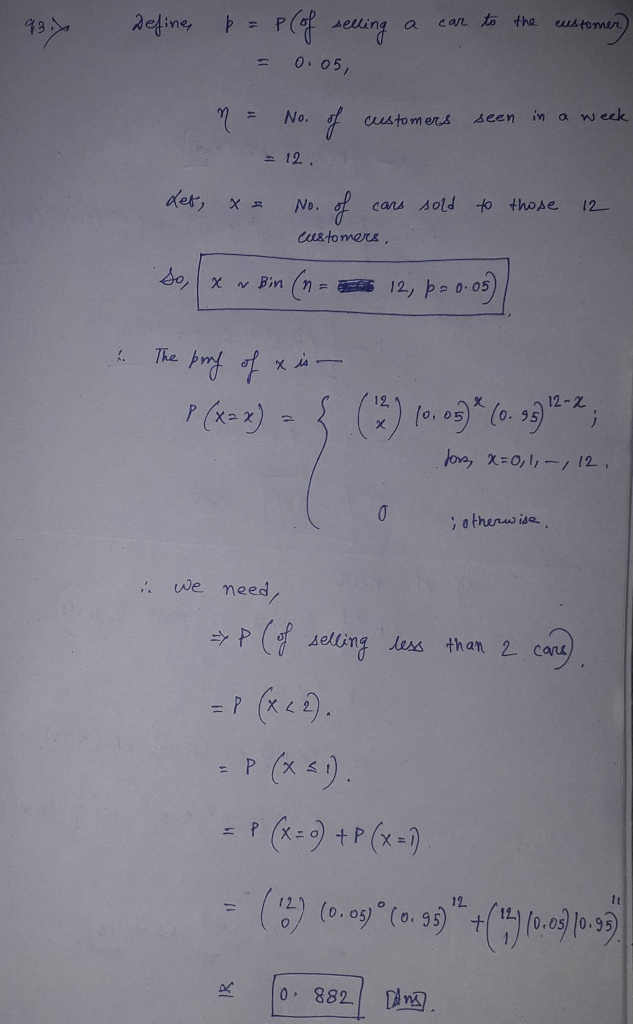 q3:> Define, p = P(of selling a car to the customer)
= 0.05,
n = No. of customers seen in a week
= 12.
Let, x = No. of cars sold to those 12
customers.
So, x ~ Bin (n = 12, p = 0.05).
∴ The pmf of x is —
P(X=x) = { (12 x) (0.05)^x (0.95)^12-x ;
for, x=0,1,-,12.
0 ; otherwise.
∴ we need,
⇒ P (of selling less than 2 cars).
= P (X < 2).
= P (X ≤ 1).
= P (X=0) + P (X=1)
= (12 0) (0.05)^0 (0.95)^12 + (12 1) (0.05) (0.95)^11
≅ 0.882 [Ans].